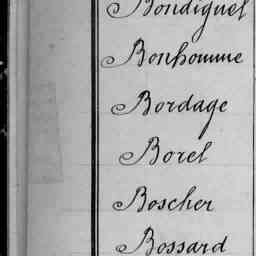 Bondiguel
Bonhomme
Bordage
Borel
Boscher
Bossard